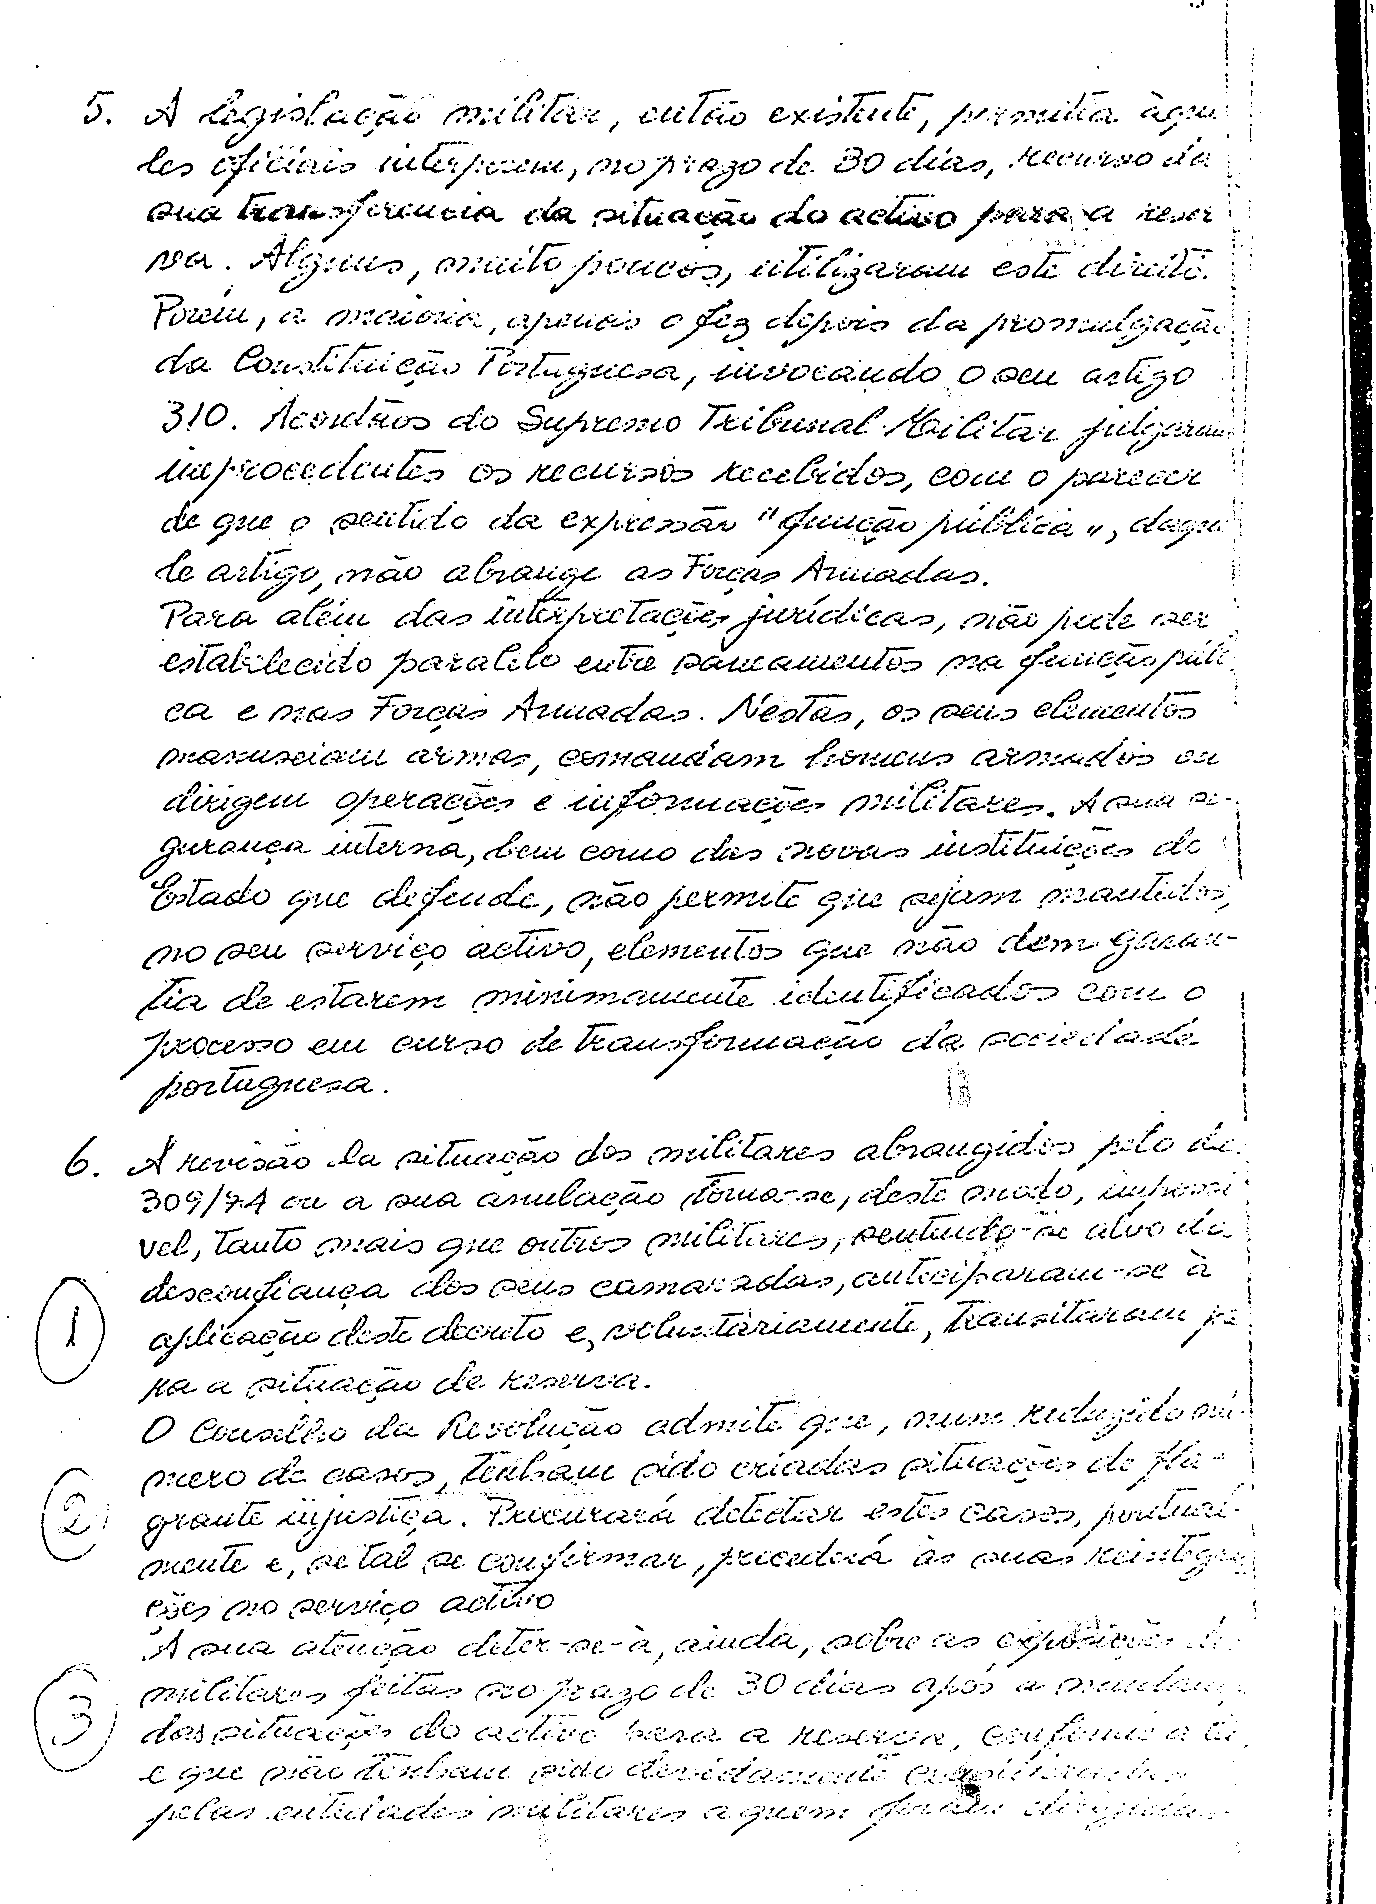 5. A legislação militar, então existente, permitia àque
les oficiais interporem, no prazo de 30 dias, recurso da
sua transferência da situação do activo para a reser
va. Alguns, muito poucos, utilizaram este direito.
Porém, a maioria, apenas o fez depois da promulgação
da Constituição Portuguesa, invocando o seu artigo
310. Acordãos do Supremo Tribunal Militar julgaram
improcedentes os recursos recebidos, com o parecer
de que o sentido da expressão "função pública", daque
le artigo, não abrange as Forças Armadas.
Para além das interpretações jurídicas, não pode ser
estabelecido paralelo entre saneamentos na função públi
ca e nas Forças Armadas. Nestas, os seus elementos
manuseiam armas, comandam homens armados ou
dirigem operações e informações militares. A sua se-
gurança interna, bem como das novas instituições do
Estado que defende, não permite que sejam mantidos,
no seu serviço activo, elementos que não dêm garan-
tia de estarem minimamente identificados com o
processo em curso de transformação da sociedade
portuguesa.
6. A revisão da situação dos militares abrangidos pelo de.
309/74 ou a sua anulação torna-se, deste modo, impossi
vel, tanto mais que outros militares, sentindo-se alvo da
desconfiança dos seus camaradas, anteciparam-se à
1 aplicação deste decreto e, voluntáriamente, transitaram pa
ra a situação de reserva.
O Conselho da Revolução admite que, num reduzido nú-
mero de casos, tenham sido criadas situações de fla-
2 grante injustiça. Procurará detectar estes casos, pontual-
mente e, se tal se confirmar, procederá às suas reintegra
ções no serviço activo
A sua atenção deter-se-à, ainda, sobre as exposições de
militares feitas no prazo de 30 dias após a mudança
3 das situações do activo para a reserva, conforme a lei,
e que não tenham sido devidamente consideradas
pelas entidades militares a quem foram dirigidas